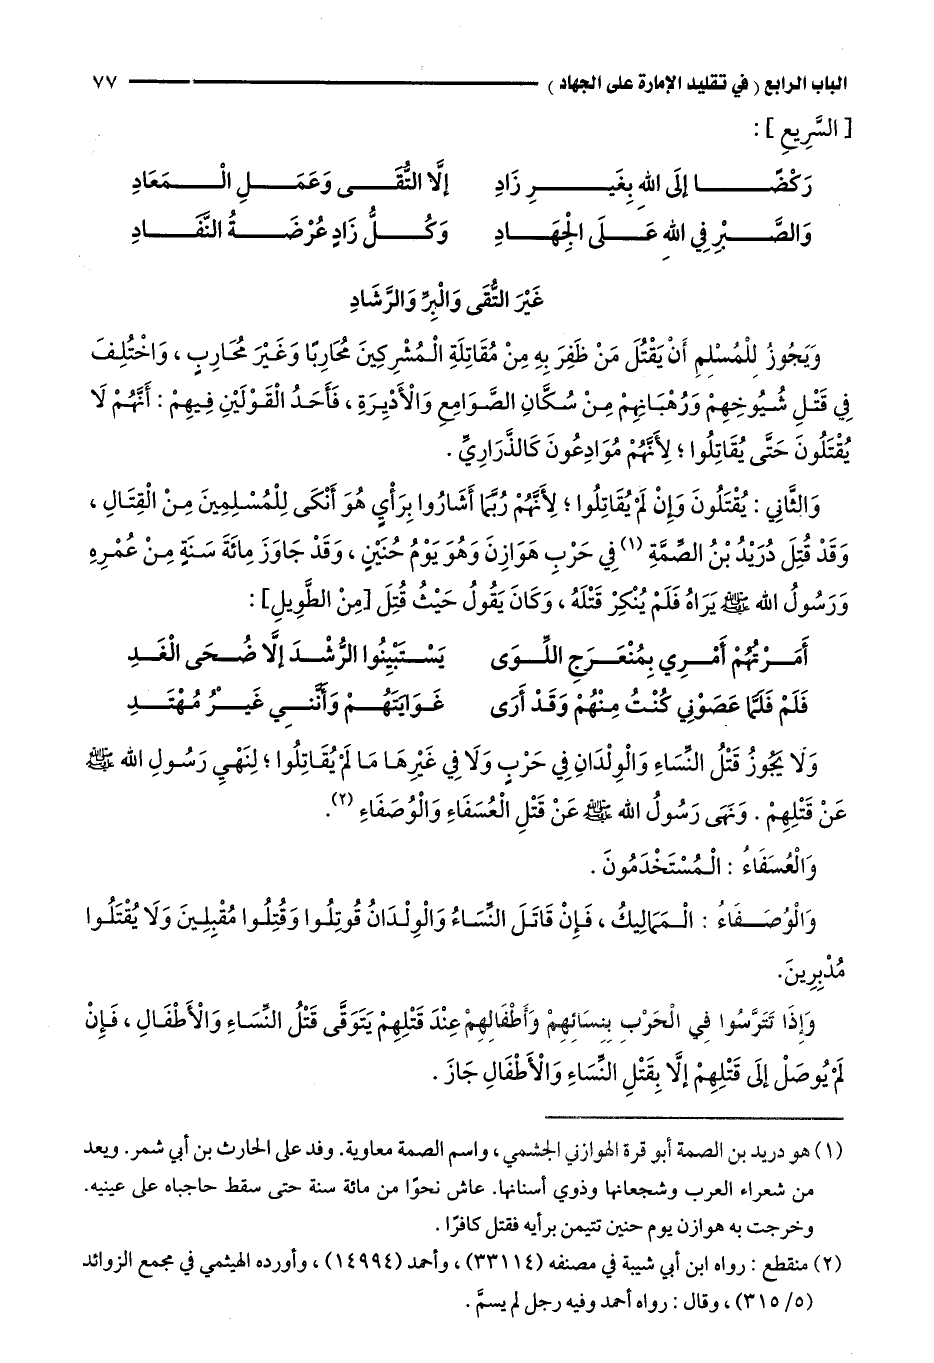 الباب الرابع ( في تقليد الإمارة على الجهاد ) ٧٧
[ السَّرِيعِ ] :
رَكْضًا إِلَى اللهِ بِغَيْرِ زَادِ إِلَّا التُّقَى وَعَمَلِ الْمَعَادِ
وَالصَّبْرِ فِي اللهِ عَلَى الْجِهَادِ وَكُلُّ زَادٍ عُرْضَةُ النَّفَادِ
غَيْرَ التُّقَى وَالْبِرِّ وَالرَّشَادِ
وَيَجُوزُ لِلْمُسْلِمِ أَنْ يَقْتُلَ مَنْ ظَفِرَ بِهِ مِنْ مُقَاتِلَةِ الْمُشْرِكِينَ مُحَارِبًا وَغَيْرَ مُحَارِبٍ ، وَاخْتُلِفَ
فِي قَتْلِ شُيُوخِهِمْ وَرُهْبَانِهِمْ مِنْ سُكَّانِ الصَّوَامِعِ وَالْأَدْيِرَةِ ، فَأَحَدُ الْقَوْلَيْنِ فِيهِمْ : أَنَّهُمْ لَا
يُقْتَلُونَ حَتَّى يُقَاتِلُوا ؛ لِأَنَّهُمْ مُوَادِعُونَ كَالذَّرَارِيِّ .
وَالثَّانِي : يُقْتَلُونَ وَإِنْ لَمْ يُقَاتِلُوا ؛ لِأَنَّهُمْ رُبَّمَا أَشَارُوا بِرَأْيٍ هُوَ أَنْكَى لِلْمُسْلِمِينَ مِنْ الْقِتَالِ ،
وَقَدْ قُتِلَ دُرَيْدُ بْنُ الصِّمَّةِ (١) فِي حَرْبِ هَوَازِنَ وَهُوَ يَوْمُ حُنَيْنٍ ، وَقَدْ جَاوَزَ مِائَةَ سَنَةٍ مِنْ عُمْرِهِ
وَرَسُولُ الله ﷺ يَرَاهُ فَلَمْ يُنْكِرْ قَتْلَهُ ، وَكَانَ يَقُولُ حَيْثُ قُتِلَ [مِنْ الطَّوِيلِ] :
أَمَرْتُهُمْ أَمْرِي بِمُنْعَرَجِ اللِّوَى يَسْتَبِينُوا الرُّشْدَ إلَّا ضُحَى الْغَدِ
فَلَمْ فَلَمَّا عَصَوْنِي كُنْتُ مِنْهُمْ وَقَدْ أَرَى غَوَايَتَهُمْ وَأَنَّنِي غَيْرُ مُهْتَدِ
وَلَا يَجُوزُ قَتْلُ النِّسَاءِ وَالْوِلْدَانِ فِي حَرْبٍ وَلَا فِي غَيْرِهَا مَا لَمْ يُقَاتِلُوا ؛ لِنَهْيِ رَسُولِ الله ﷺ
عَنْ قَتْلِهِمْ . وَنَهَى رَسُولُ الله ﷺ عَنْ قَتْلِ الْعُسَفَاءِ وَالْوُصَفَاءِ (٢).
وَالْعُسَفَاءُ : الْمُسْتَخْدَمُونَ .
وَالْوُصَفَاءُ : الْمَمَالِيكُ ، فَإِنْ قَاتَلَ النِّسَاءُ وَالْوِلْدَانُ قُوتِلُوا وَقُتِلُوا مُقْبِلِينَ وَلَا يُقْتَلُوا
مُدْبِرِينَ.
وَإِذَا تَتَرَّسُوا فِي الْحَرْبِ بِنِسَائِهِمْ وَأَطْفَالِهِمْ عِنْدَ قَتْلِهِمْ يَتَوَقَّى قَتْلُ النِّسَاءِ وَالْأَطْفَالِ ، فَإِنْ
لَمْ يُوصَلْ إِلَى قَتْلِهِمْ إلَّا بِقَتْلِ النِّسَاءِ وَالْأَطْفَالِ جَازَ .
(١) هو دريد بن الصمة أبو قرة الهوازني الجشمي ، واسم الصمة معاوية. وفد على الحارث بن أبي شمر. ويعد
من شعراء العرب وشجعانها وذوي أسنانها. عاش نحوًا من مائة سنة حتى سقط حاجباه على عينيه.
وخرجت به هوازن يوم حنين تتيمن برأيه فقتل كافرًا .
(٢) منقطع : رواه ابن أبي شيبة في مصنفه (٣٣١١٤) ، وأحمد (١٤٩٩٤) ، وأورده الهيثمي في مجمع الزوائد
(٥/ ٣١٥) ، وقال : رواه أحمد وفيه رجل لم يسمَّ .